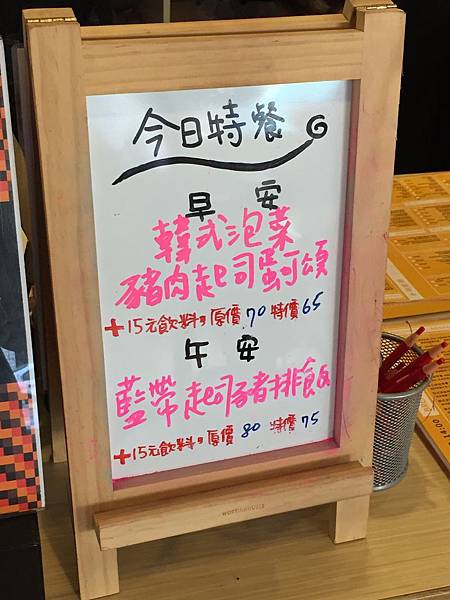 今日特餐
早 安
韓式泡菜
豬肉起司蛋可頌
+15元飲料 原價 70 特價 65
午 安
藍帶起司豬排飯
+15元飲料 原價 80 特價 75